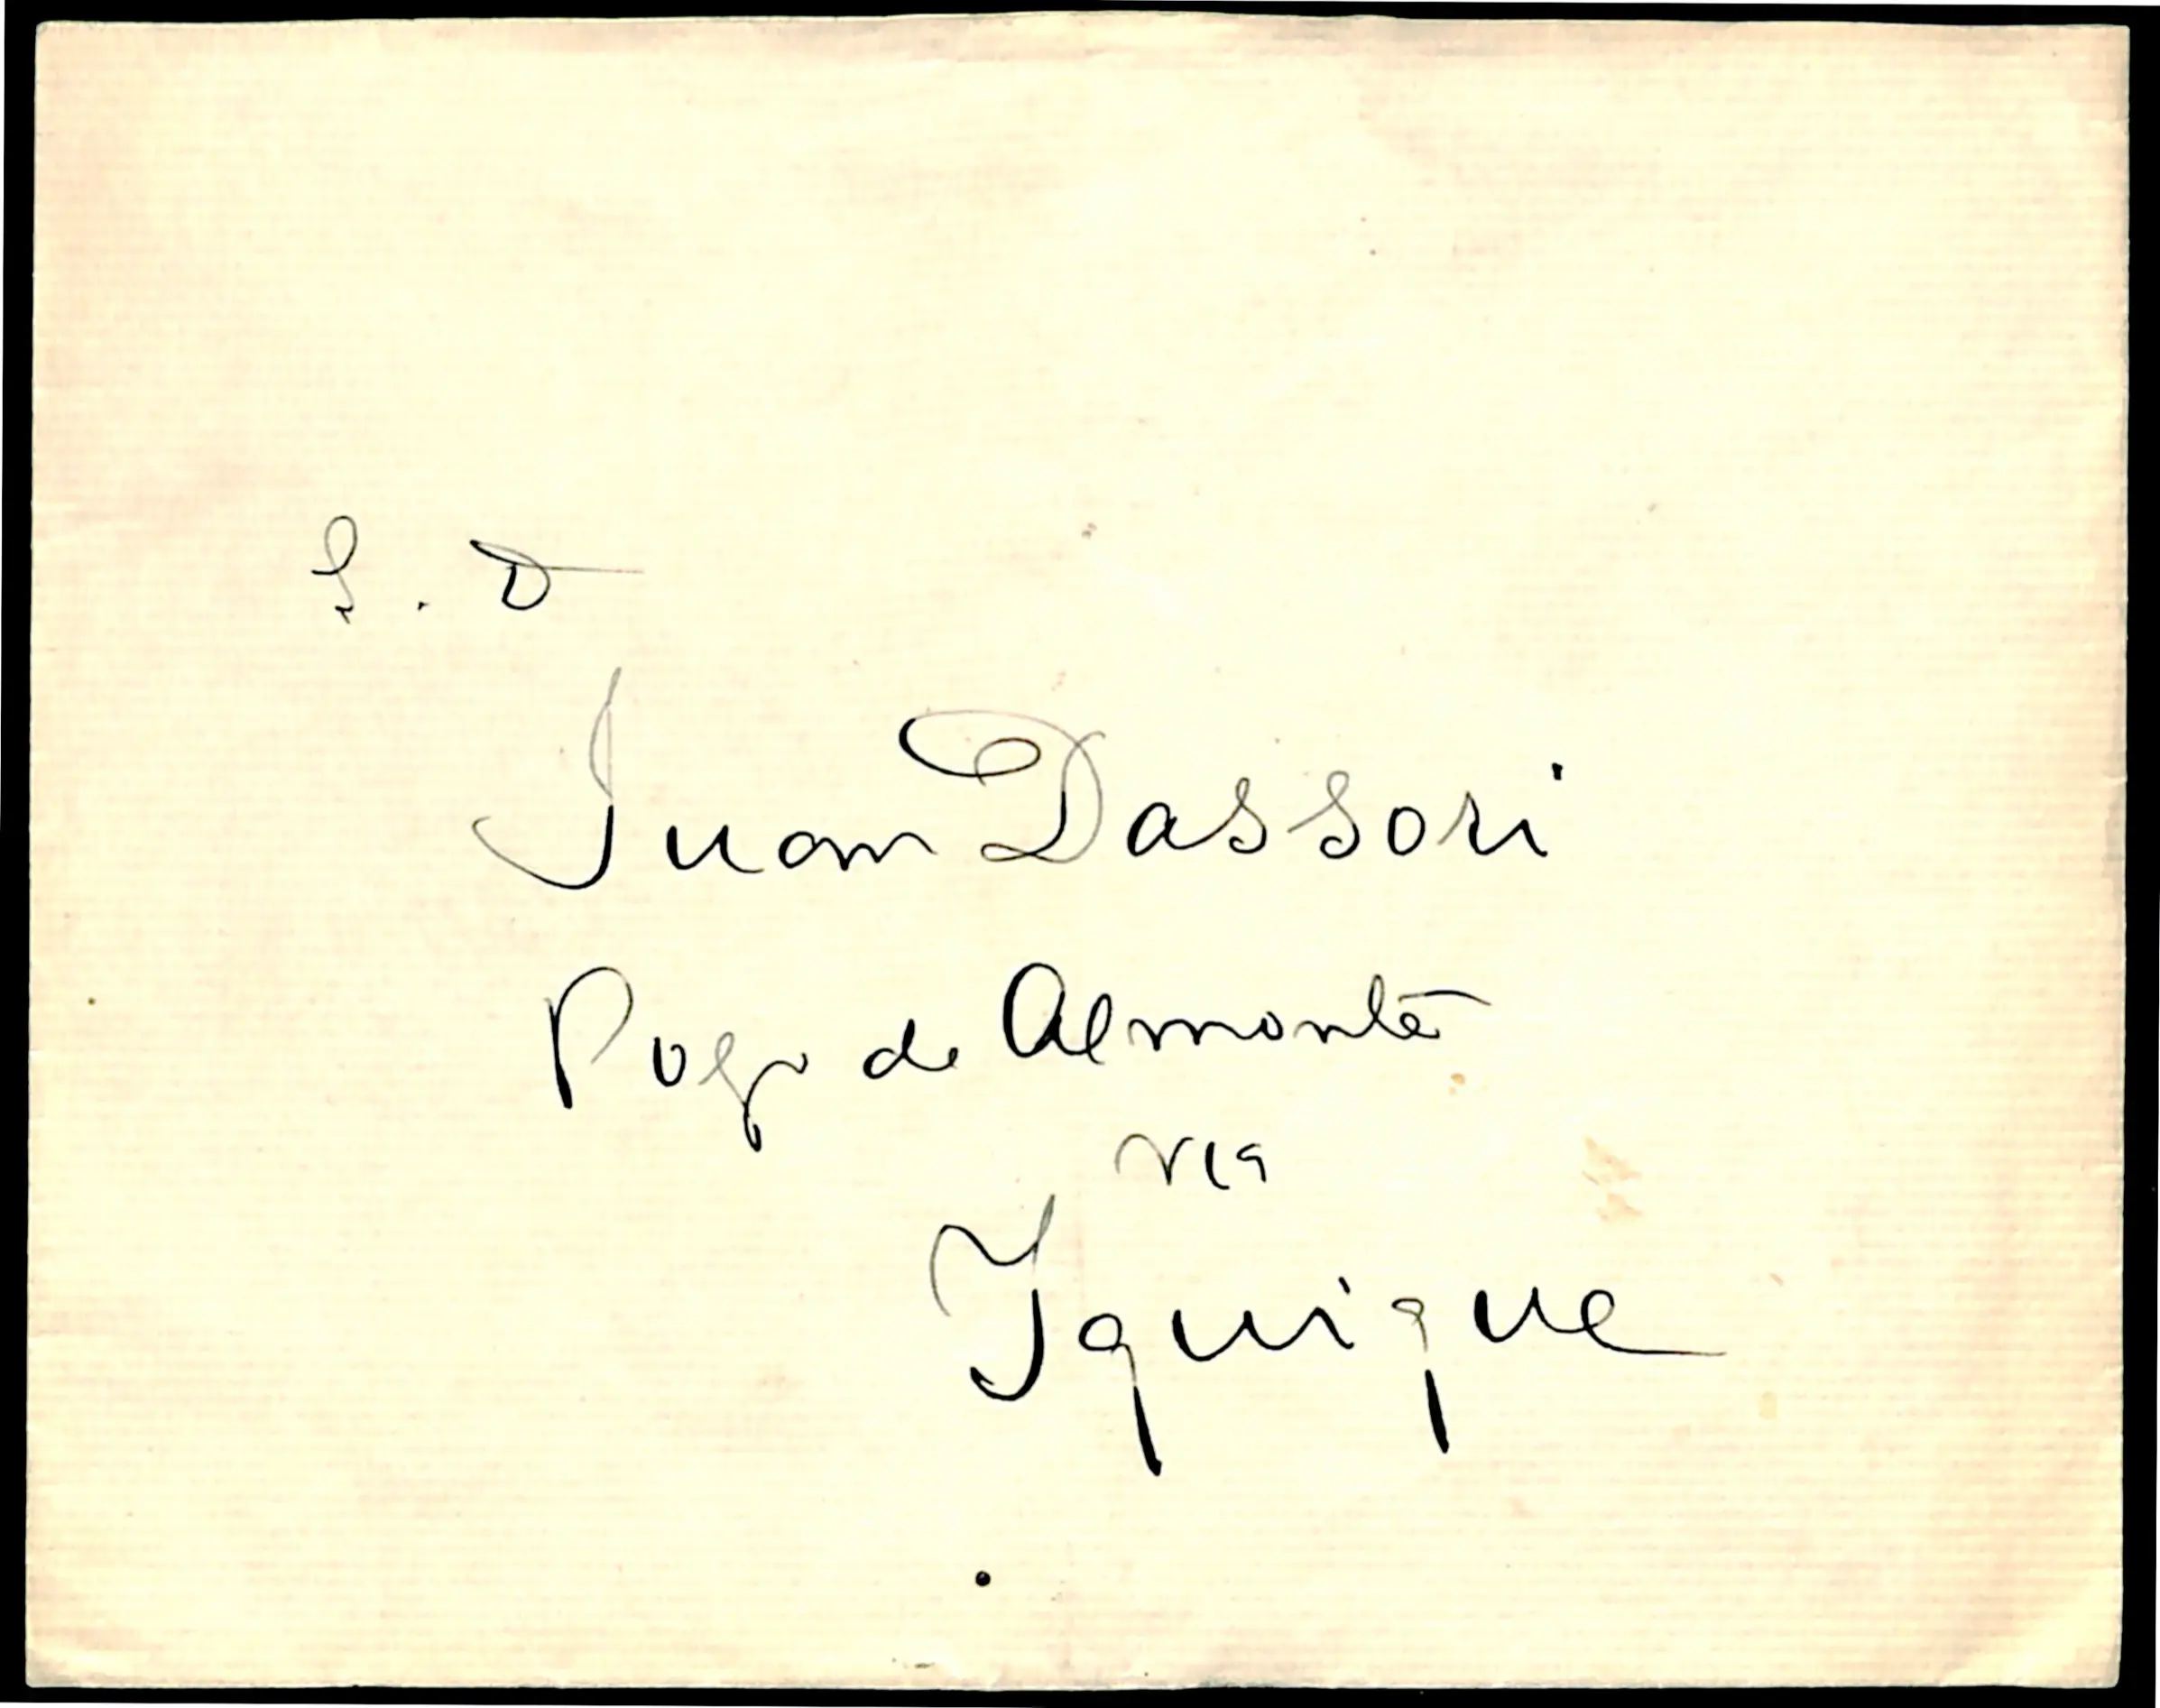 S. D
Juan Dassori
Pozo de Almonte
via
Iquique